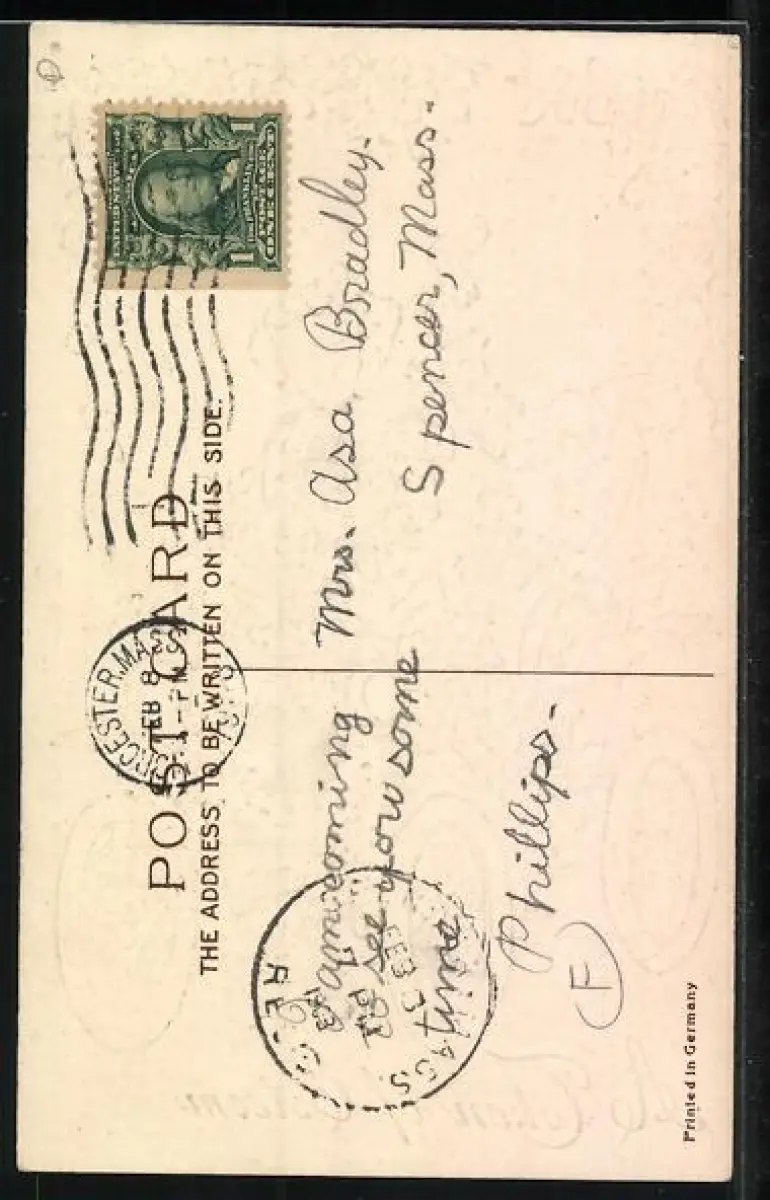 POST CARD
THE ADDRESS TO BE WRITTEN ON THIS SIDE.
UNITED STATES OF
POSTAGE
ONE CENT
1 1
WORCESTER, MASS.
FEB 8
-PM
Mrs. Asa Bradley.
Spencer, Mass.
I am coming
to see you some
time
Phillips-
F
REC'D
FEB
MASS
Printed in Germany